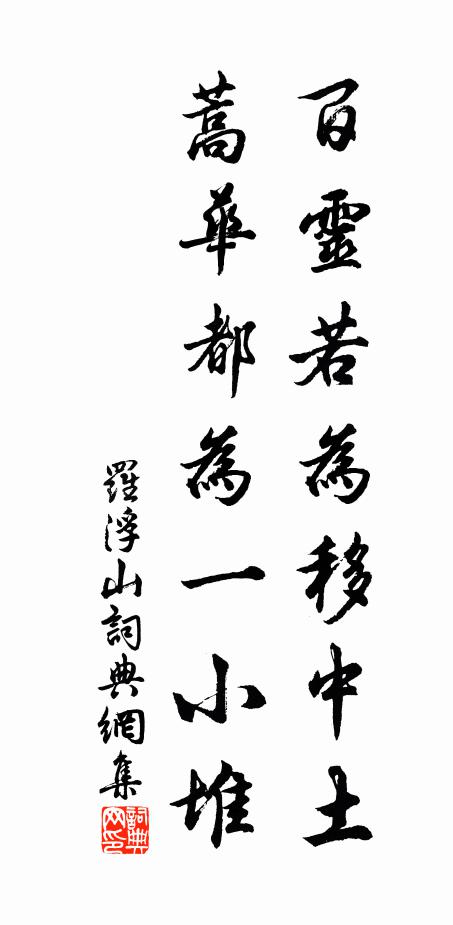 百靈若為移中土
蒿華都為一小堆
羅浮山詞典網集
詞典网印